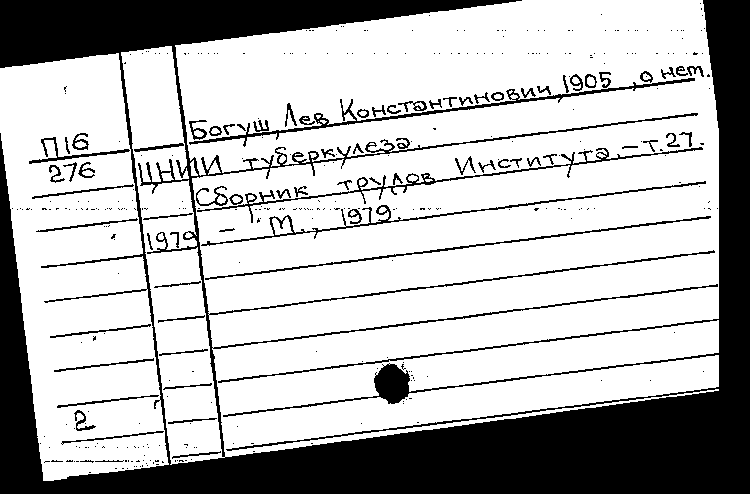 Богуш, Лев Константинович, 1905, о нем.
П16
276
ЦНИИ туберкулеза.
Сборник трудов Института. - т.27.
1979. - М., 1979.
2